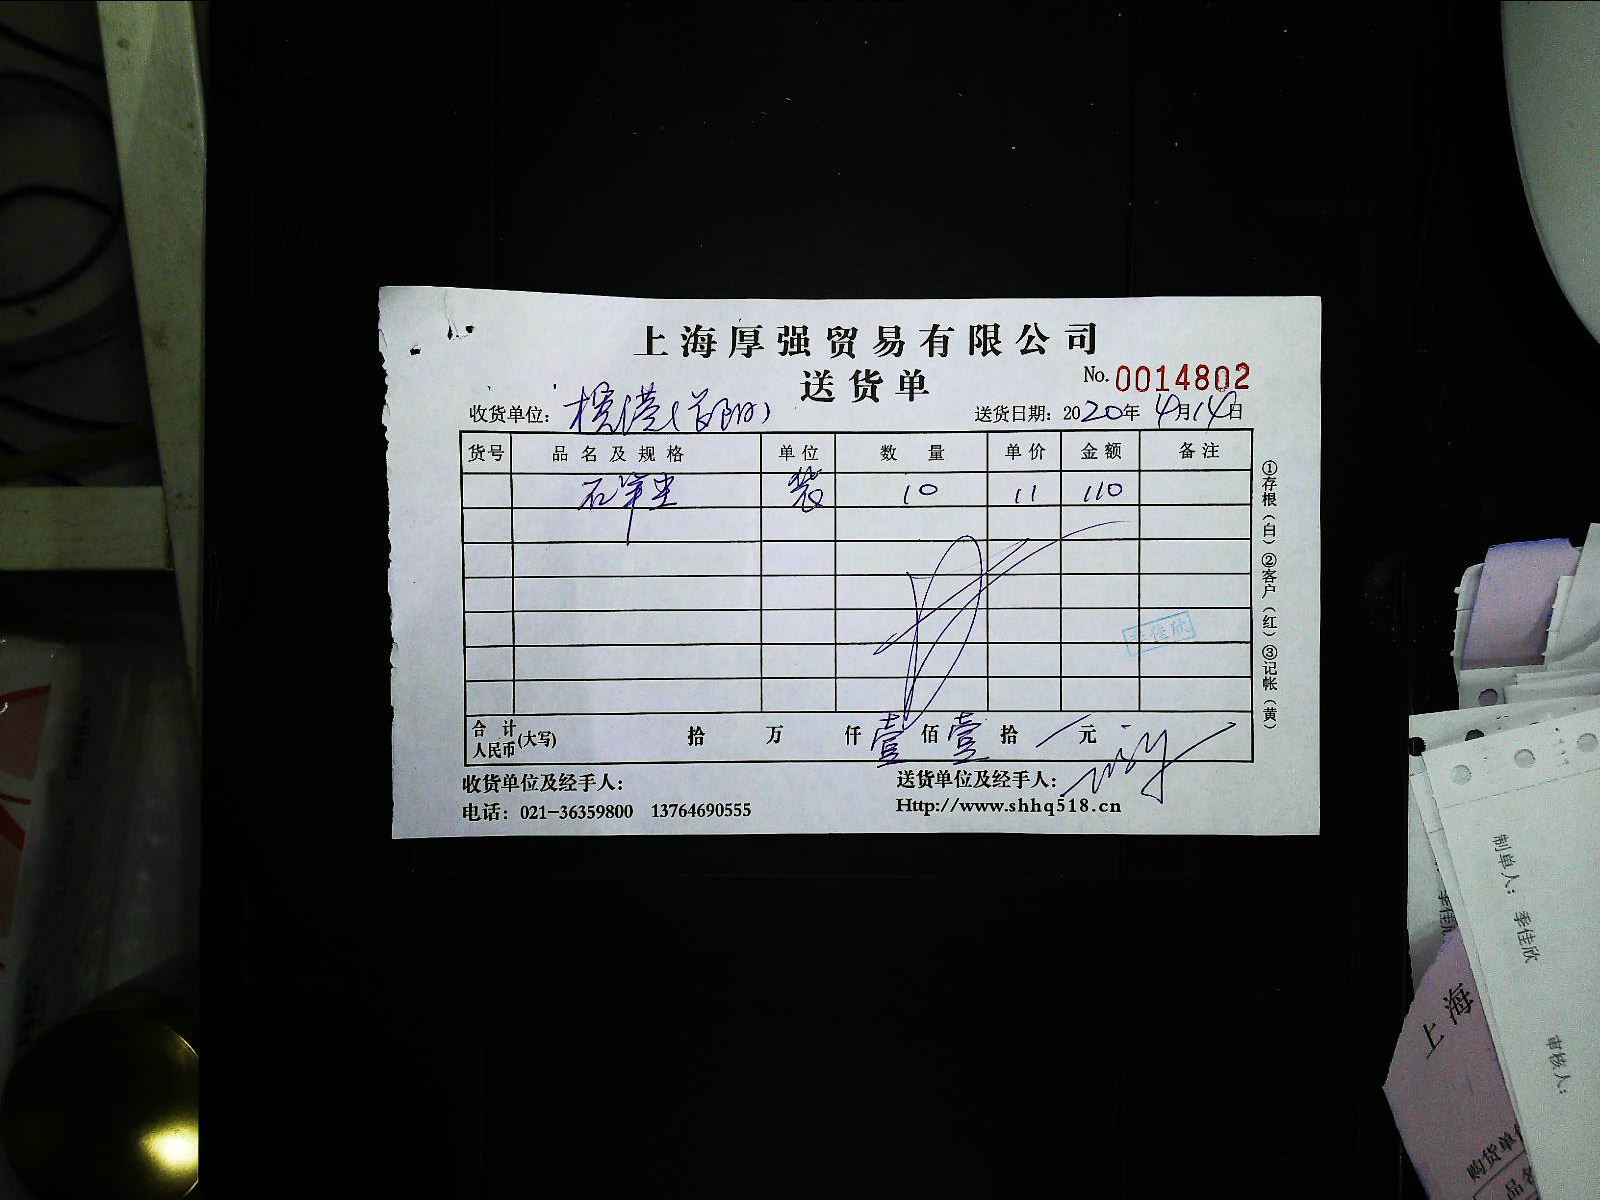 上海厚强贸易有限公司
送货单
No. 0014802
收货单位：
送货日期：2020年4月14日
货号 品名及规格 单位 数量 单价 金额 备注
石笔尘 装 10 11 110
李佳欣
合计人民币(大写) 拾 万 仟壹佰壹拾 元
收货单位及经手人：
送货单位及经手人：
电话：021-36359800 13764690555
Http://www.shhq518.cn
①存根（白）②客户（红）③记帐（黄）
制单人：李佳欣
审核人：
李佳欣
上海
购货单
品名